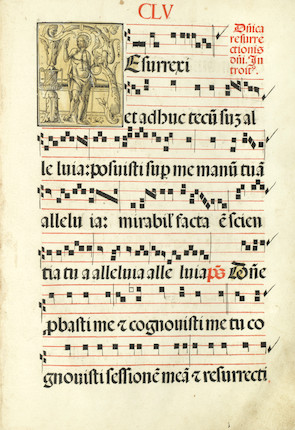 CLV
Dn̄ica
resurre
ctionis
dn̄i. In
troit⁹.
Esurrexi
et adhuc tecū suȝ al
le luia: posuisti sup me manū tuā
allelu ia: mirabil' facta ē scien
tia tu a alleluia alle luia p̄s Dn̄e
pbasti me ⁊ cognouisti me tu co
gnouisti sessionē meā ⁊ resurrecti